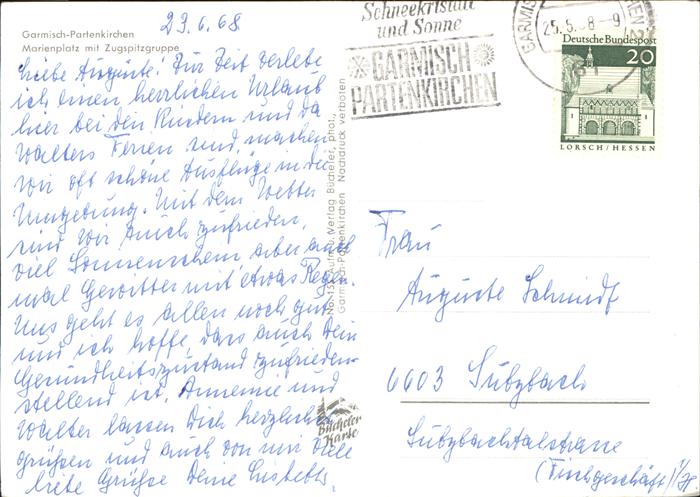 Garmisch-Partenkirchen
Marienplatz mit Zugspitzgruppe
23.6.68
Liebe Auguste! Zur Zeit verlebe
ich einen herrlichen Urlaub
hier bei den Kindern und da
Walters Ferien sind, machen
wir oft schöne Ausflüge in die
Umgebung. Mit dem Wetter
sind wir auch zufrieden,
viel Sonnenschein aber auch
mal Gewitter mit etwas Regen.
Uns geht es allen noch gut
und ich hoffe, dass auch Dein
Gesundheitszustand zufrieden-
stellend ist. Annemie und
Walter lassen Dich herzlichst
grüßen und auch von mir viele
liebe Grüße Deine Lisbeth.
No. 15 Aufn. u. Verlag Bücheler, phot.,
Garmisch-Partenkirchen Nachdruck verboten
Bücheler
Karte
Schneekristall
und Sonne
GARMISCH
PARTENKIRCHEN
GARMISCH
25.6.68-9
Deutsche Bundespost
20
LORSCH/HESSEN
Frau
Auguste Schmidt
6603 Sulzbach
Sulzbachtalstrasse
(Fischgeschäft)